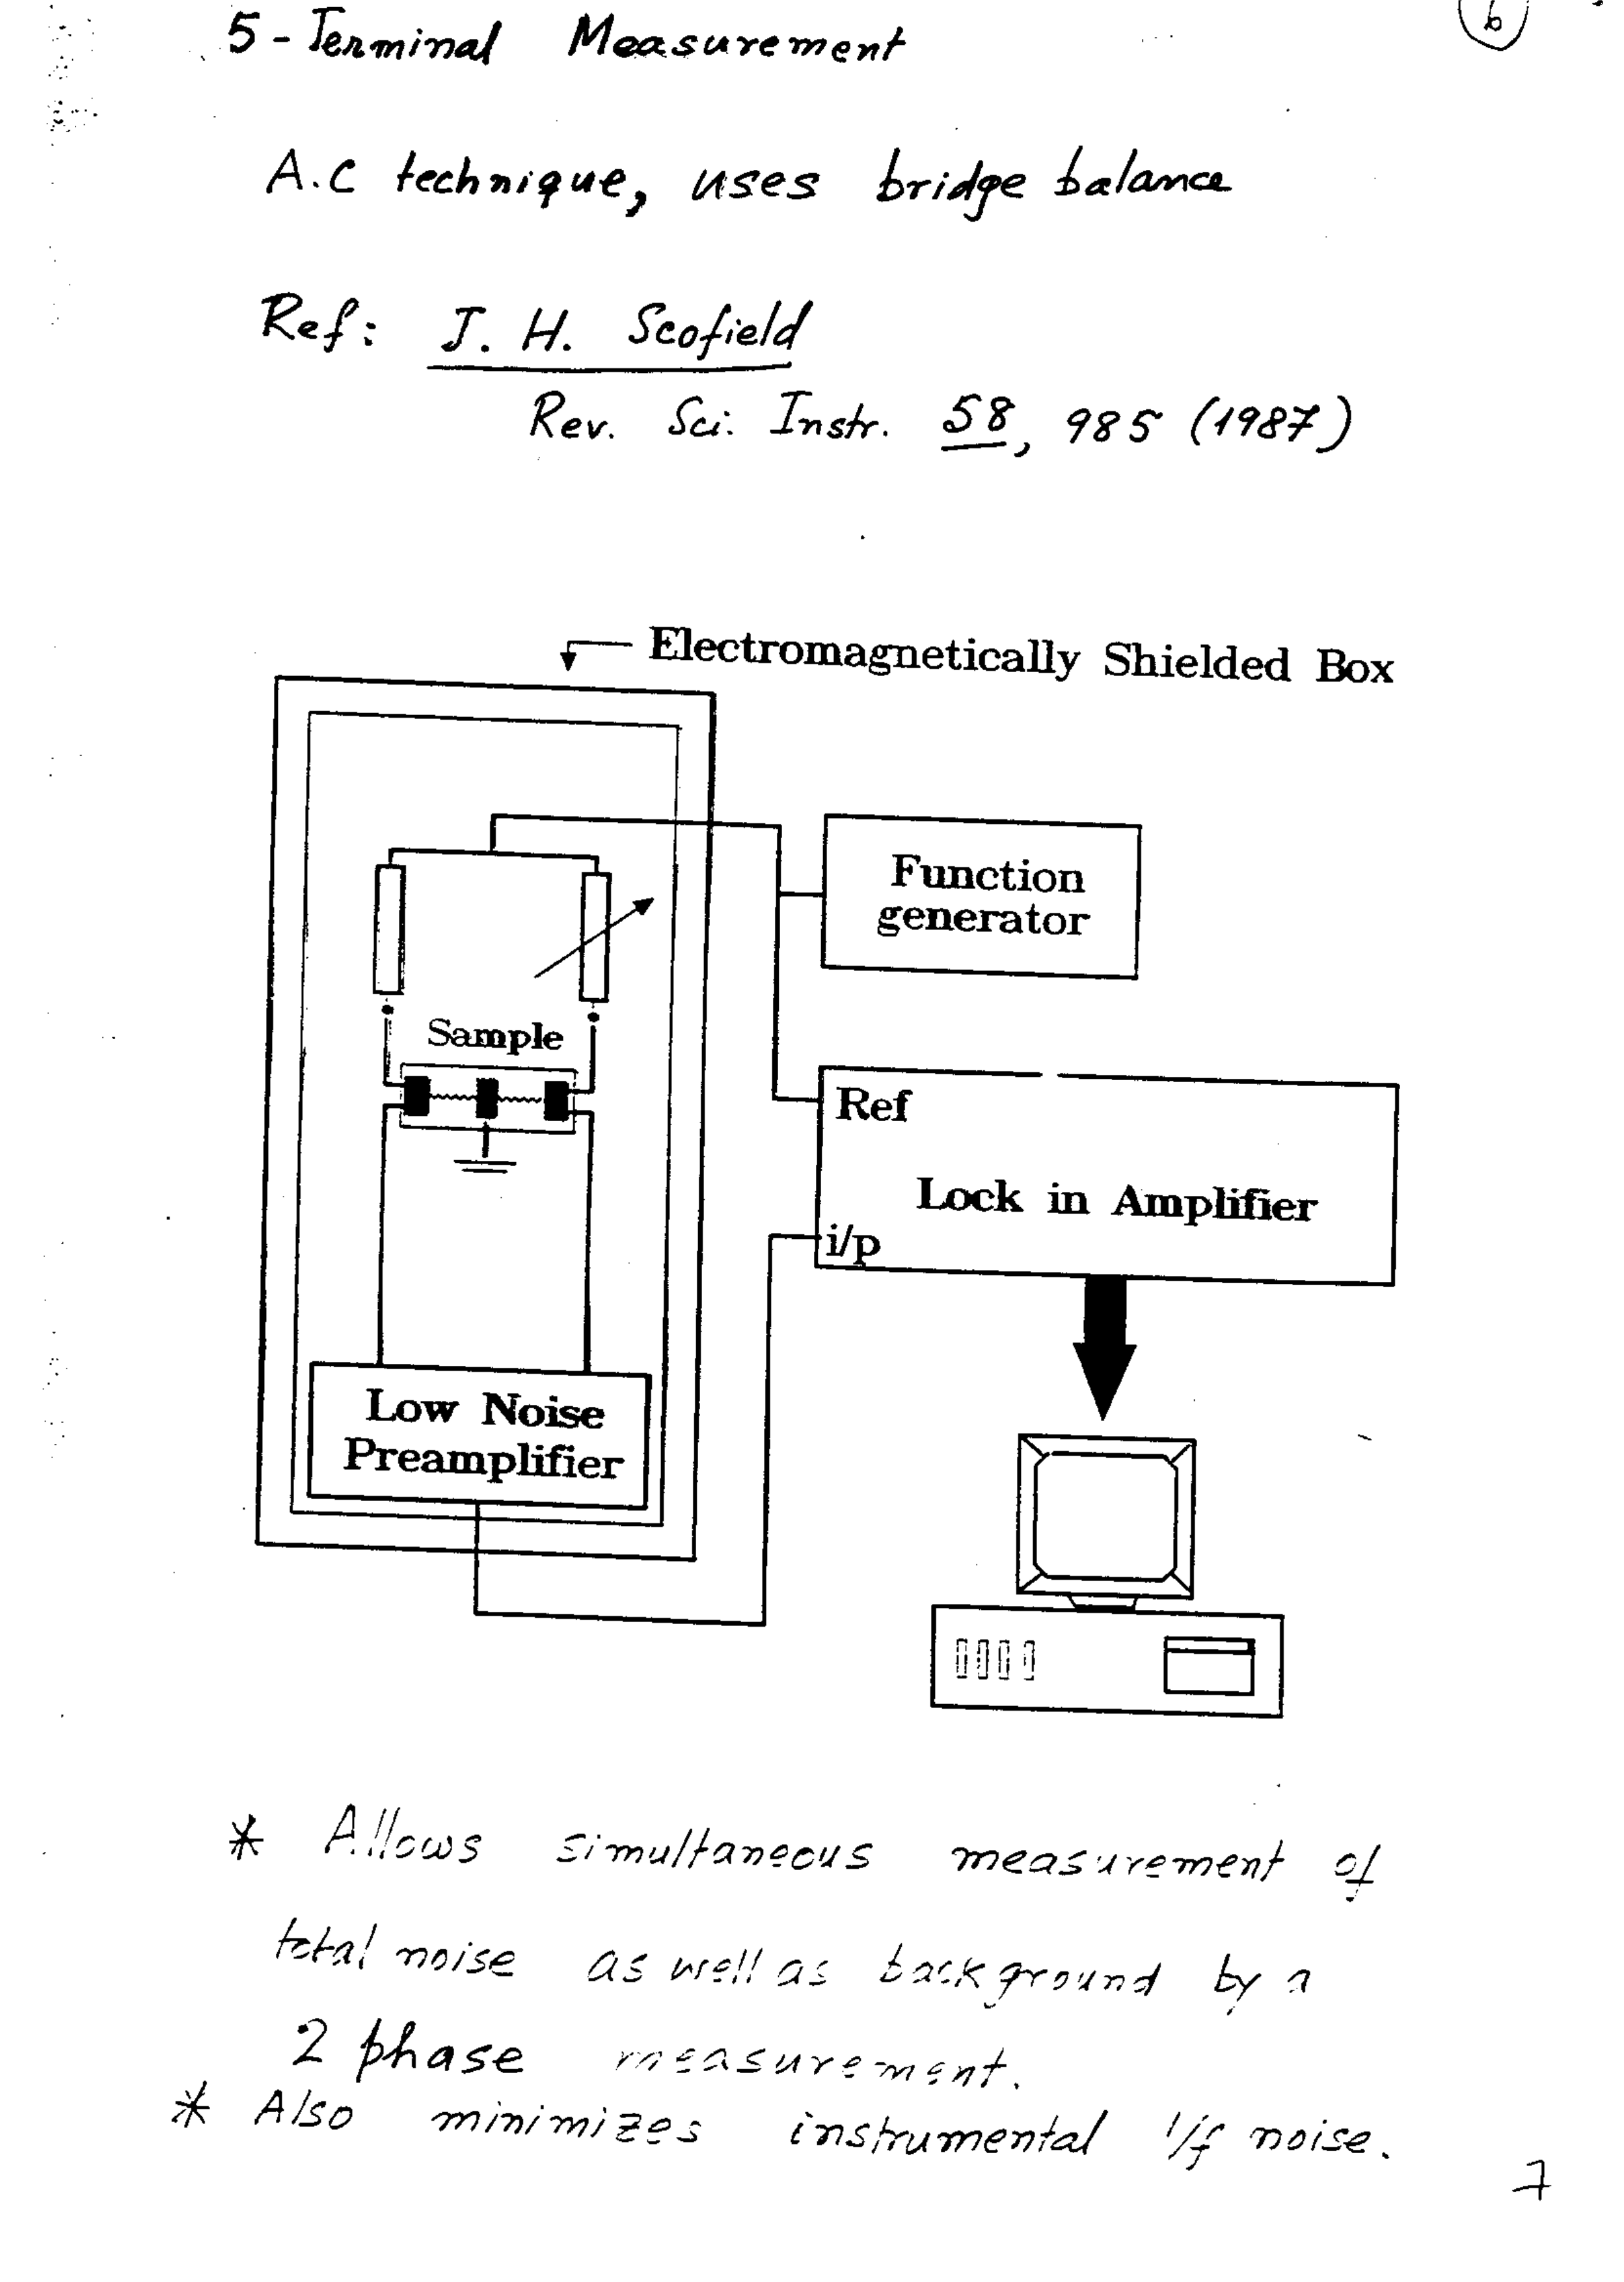 6
5-Terminal Measurement
A.C technique, uses bridge balance
Ref: J. H. Scofield
Rev. Sci. Instr. 58, 985 (1987)
Electromagnetically Shielded Box
Function
generator
Sample
Ref
Lock in Amplifier
i/p
Low Noise
Preamplifier
* Allows simultaneous measurement of
total noise as well as background by a
2 phase measurement.
* Also minimizes instrumental 1/f noise.
7